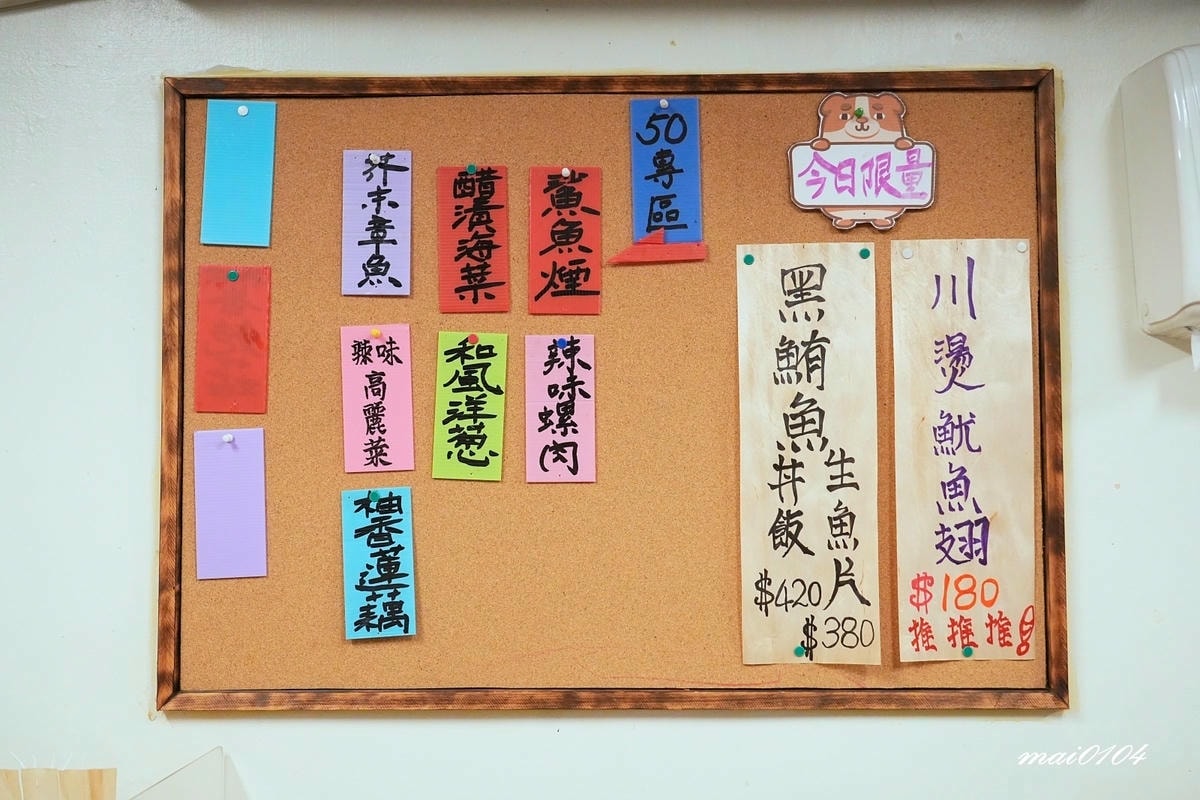 50專區
鯊魚煙
醋漬海菜
芥末章魚
辣味螺肉
和風洋葱
辣味
高麗菜
柚香蓮藕
今日限量
川燙魷魚翅
$180
推推推!
黑鮪魚
生魚片
$380
丼飯
$420
mai0104